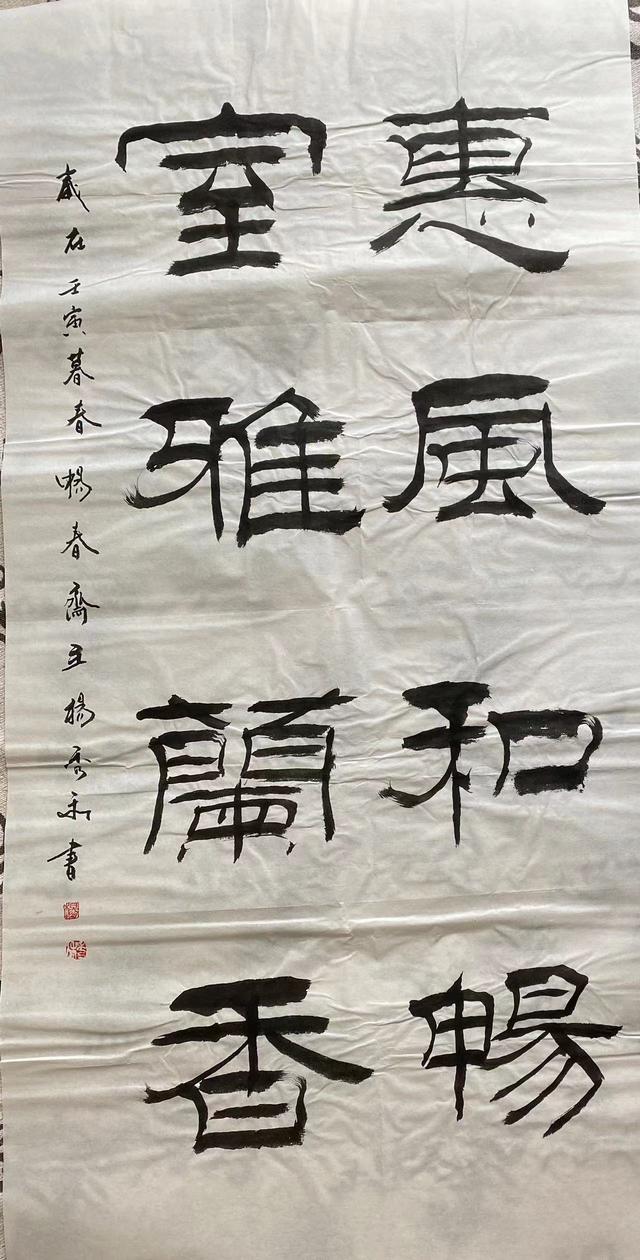 惠風和暢
室雅蘭香
歲在壬寅暮春暢春齋主楊秀和書